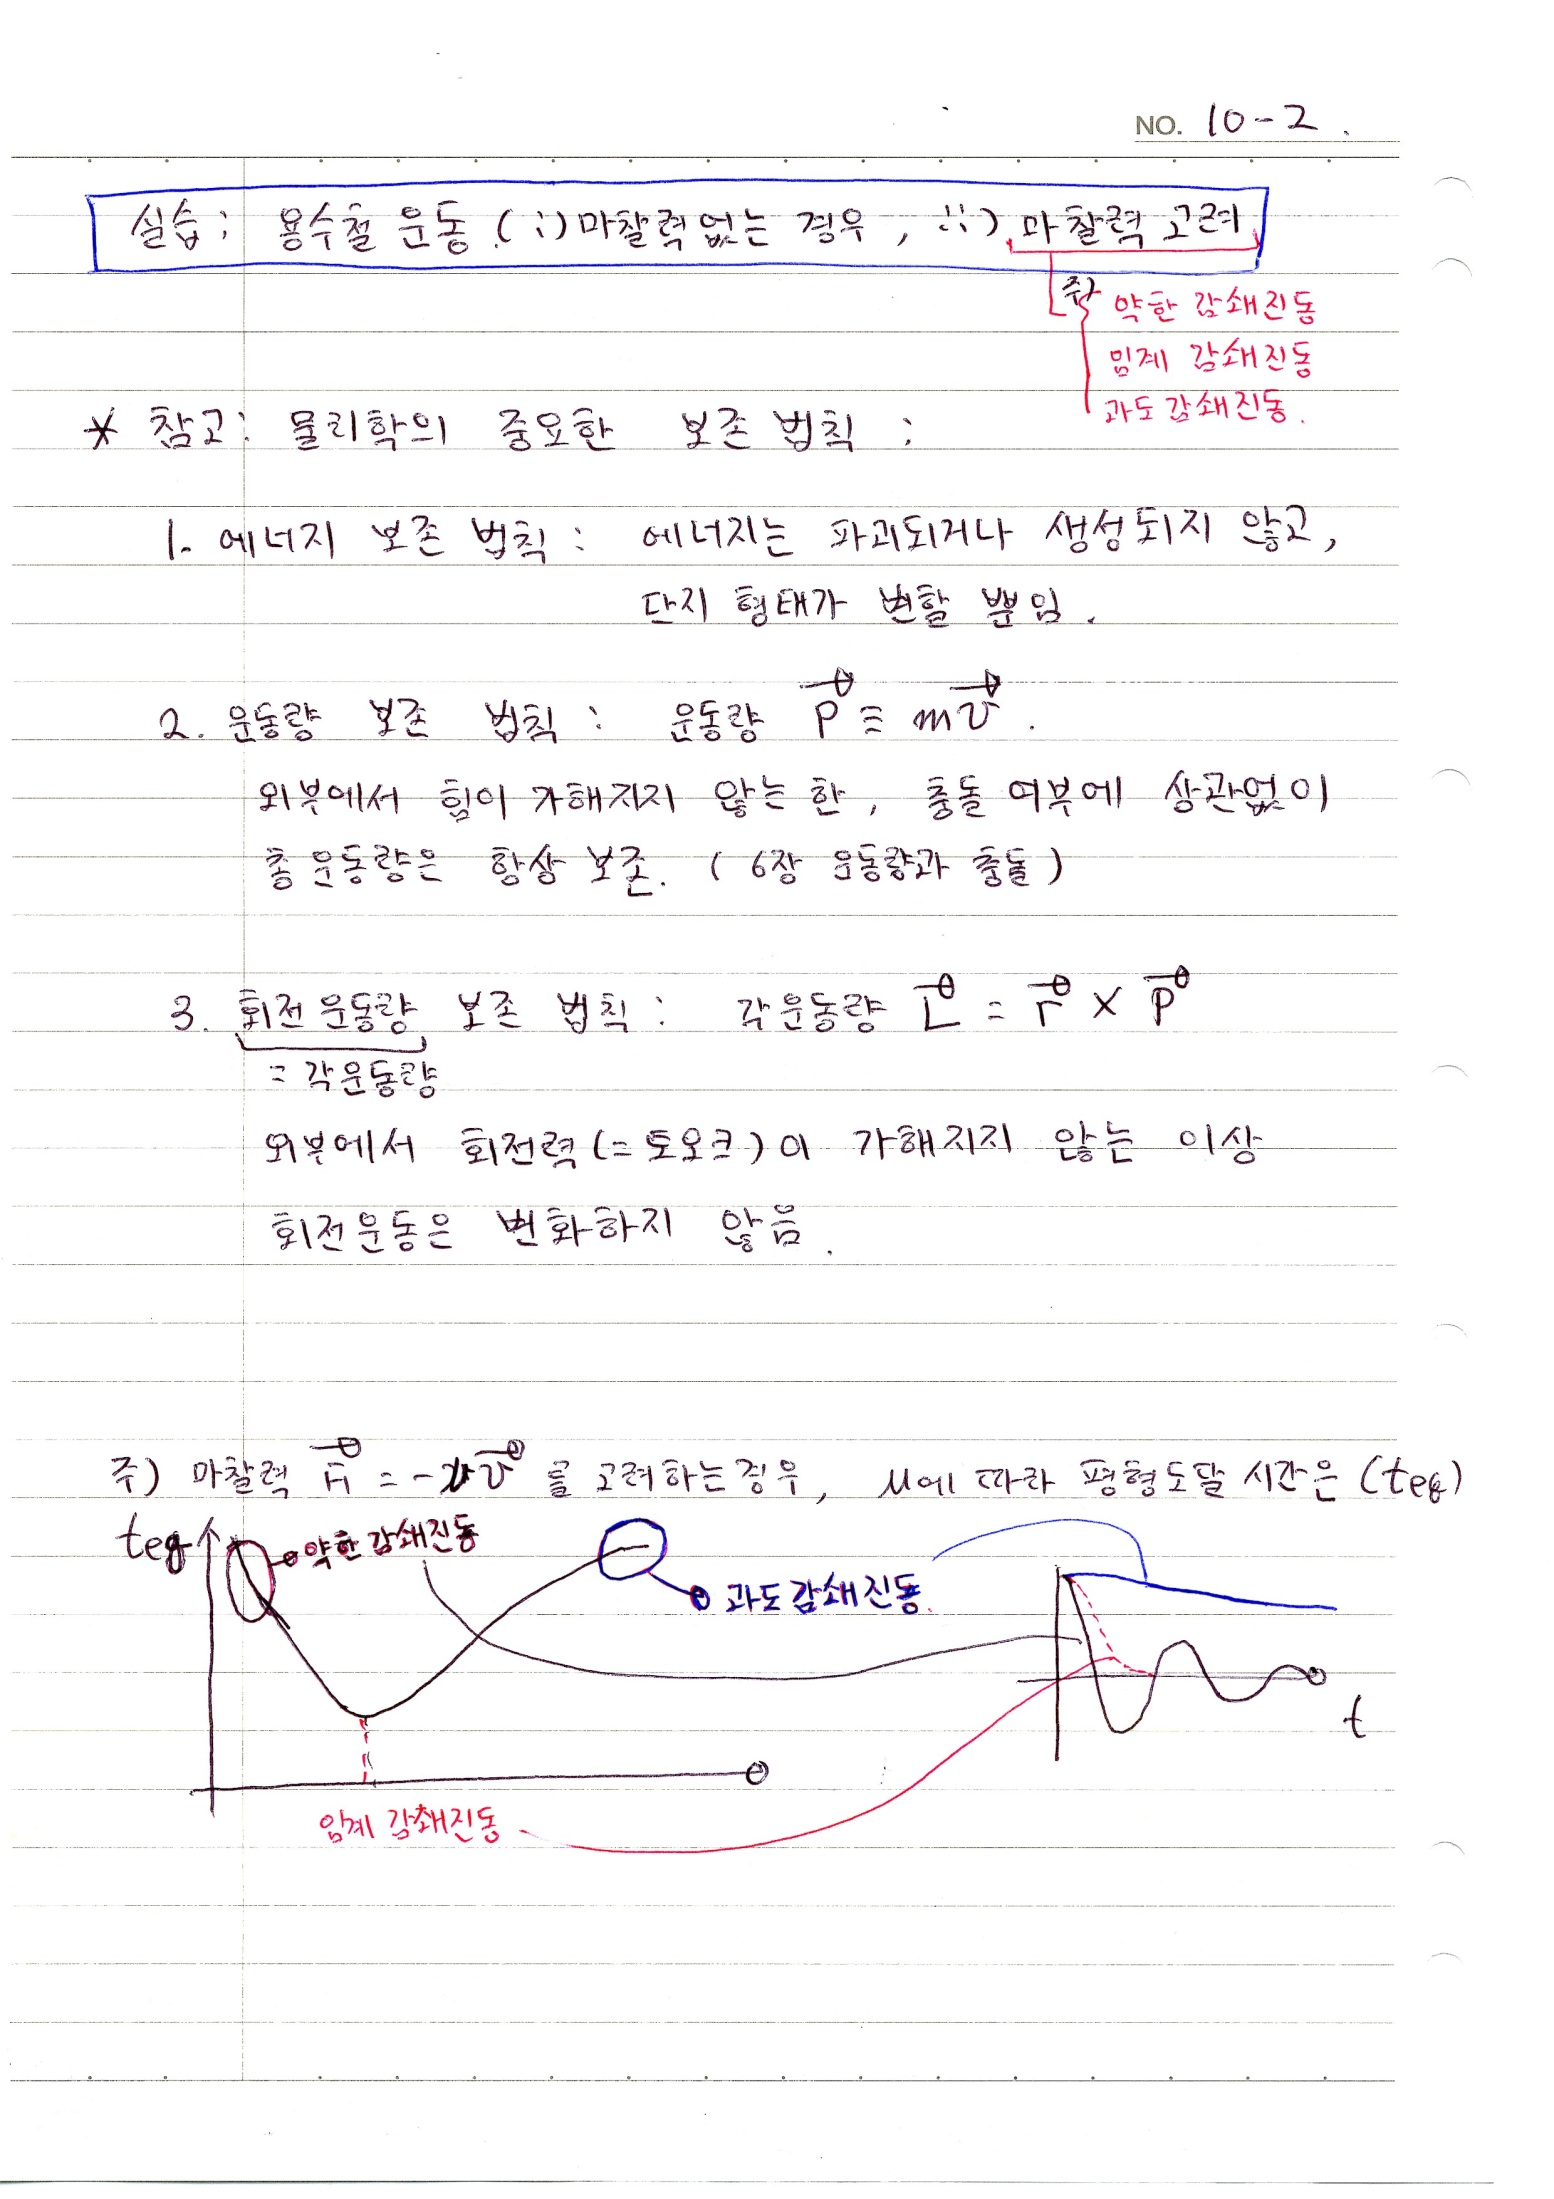 NO. 10-2.
실습 : 용수철 운동 (i) 마찰력 없는 경우, ii) 마찰력 고려
주) 약한 감쇄진동
임계 감쇄진동
과도 감쇄진동.
* 참고 : 물리학의 중요한 보존 법칙 :
1. 에너지 보존 법칙 : 에너지는 파괴되거나 생성되지 않고,
단지 형태가 변할 뿐임.
2. 운동량 보존 법칙 : 운동량 P⃗ ≡ mv⃗.
외부에서 힘이 가해지지 않는 한, 충돌 여부에 상관없이
총 운동량은 항상 보존. (6장 운동량과 충돌)
3. 회전 운동량 보존 법칙 : 각운동량 L⃗ = r⃗ × P⃗
= 각운동량
외부에서 회전력(=토오크)이 가해지지 않는 이상
회전운동은 변화하지 않음.
주) 마찰력 = - v⃗ 를 고려하는 경우, μ에 따라 평형도달 시간은 (teq)
teq
약한 감쇄진동
과도 감쇄진동.
t
임계 감쇄진동